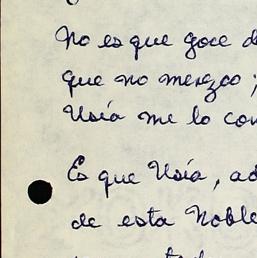 No es que goce d
que no merezco;
Usía me lo con
Es que Usía, ad
de esta Noble